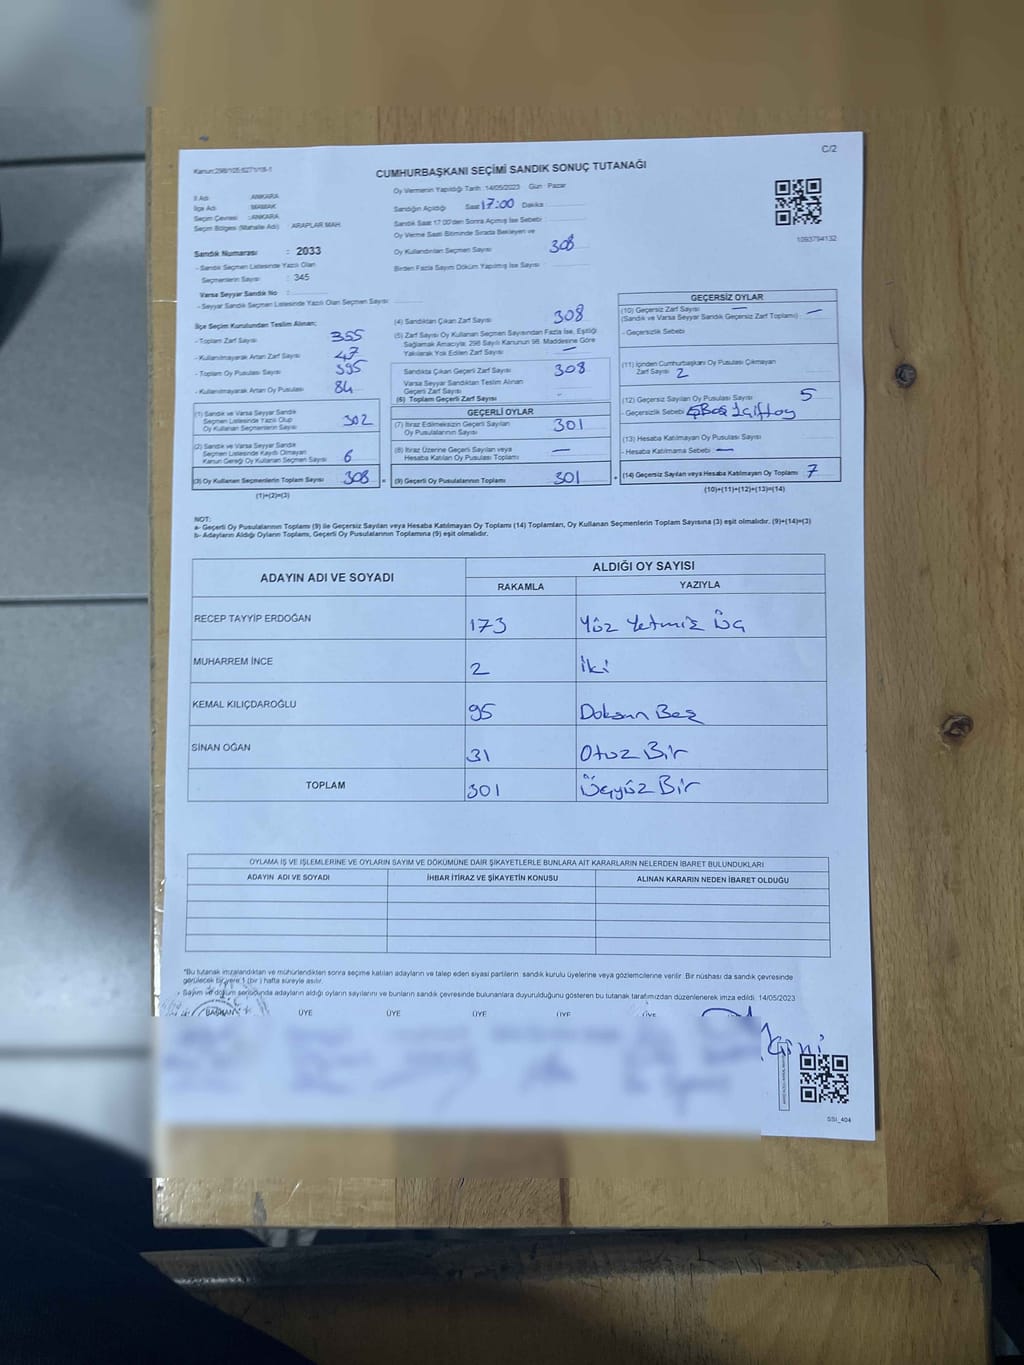 Kanun:298/105,6271/18-1
C/2
CUMHURBAŞKANI SEÇİMİ SANDIK SONUÇ TUTANAĞI
İl Adı : ANKARA
İlçe Adı : MAMAK
Seçim Çevresi : ANKARA
Seçim Bölgesi (Mahalle Adı) : ARAPLAR MAH.
Sandık Numarası : 2033
- Sandık Seçmen Listesinde Yazılı Olan
Seçmenlerin Sayısı : 345
Varsa Seyyar Sandık No :
- Seyyar Sandık Seçmen Listesinde Yazılı Olan Seçmen Sayısı
Oy Vermenin Yapıldığı Tarih : 14/05/2023 Gün : Pazar
Sandığın Açıldığı Saat 17:00 Dakika
Sandık Saat 17.00'den Sonra Açılmış İse Sebebi
Oy Verme Saati Bitiminde Sırada Bekleyen ve
Oy Kullandırılan Seçmen Sayısı 308
Birden Fazla Sayım Döküm Yapılmış İse Sayısı :
1093794132
İlçe Seçim Kurulundan Teslim Alınan;
- Toplam Zarf Sayısı 355
- Kullanılmayarak Artan Zarf Sayısı 47
- Toplam Oy Pusulası Sayısı 395
- Kullanılmayarak Artan Oy Pusulası 84
(1) Sandık ve Varsa Seyyar Sandık
Seçmen Listesinde Yazılı Olup
Oy Kullanan Seçmenlerin Sayısı 302
(2) Sandık ve Varsa Seyyar Sandık
Seçmen Listesinde Kaydı Olmayan
Kanun Gereği Oy Kullanan Seçmen Sayısı 6
(3) Oy Kullanan Seçmenlerin Toplam Sayısı 308 =
(1)+(2)=(3)
(4) Sandıktan Çıkan Zarf Sayısı 308
(5) Zarf Sayısı Oy Kullanan Seçmen Sayısından Fazla İse, Eşitliği
Sağlamak Amacıyla; 298 Sayılı Kanunun 98. Maddesine Göre
Yakılarak Yok Edilen Zarf Sayısı —
Sandıkta Çıkan Geçerli Zarf Sayısı 308
Varsa Seyyar Sandıktan Teslim Alınan
Geçerli Zarf Sayısı -
(6) Toplam Geçerli Zarf Sayısı
GEÇERLİ OYLAR
(7) İtiraz Edilmeksizin Geçerli Sayılan
Oy Pusulalarının Sayısı 301
(8) İtiraz Üzerine Geçerli Sayılan veya
Hesaba Katılan Oy Pusulası Toplamı —
(9) Geçerli Oy Pusulalarının Toplamı 301 +
GEÇERSİZ OYLAR
(10) Geçersiz Zarf Sayısı —
(Sandık ve Varsa Seyyar Sandık Geçersiz Zarf Toplamı) : —
- Geçersizlik Sebebi
(11) İçinden Cumhurbaşkanı Oy Pusulası Çıkmayan
Zarf Sayısı 2
(12) Geçersiz Sayılan Oy Pusulası Sayısı 5
- Geçersizlik Sebebi
(13) Hesaba Katılmayan Oy Pusulası Sayısı
- Hesaba Katılmama Sebebi —
(14) Geçersiz Sayılan veya Hesaba Katılmayan Oy Toplamı 7
(10)+(11)+(12)+(13)=(14)
NOT:
a- Geçerli Oy Pusulalarının Toplamı (9) ile Geçersiz Sayılan veya Hesaba Katılmayan Oy Toplamı (14) Toplamları, Oy Kullanan Seçmenlerin Toplam Sayısına (3) eşit olmalıdır. (9)+(14)=(3)
b- Adayların Aldığı Oyların Toplamı, Geçerli Oy Pusulalarının Toplamına (9) eşit olmalıdır.
ADAYIN ADI VE SOYADI
ALDIĞI OY SAYISI
RAKAMLA YAZIYLA
RECEP TAYYİP ERDOĞAN 173 Yüz Yetmiş Üç
MUHARREM İNCE 2 İki
KEMAL KILIÇDAROĞLU 95 Doksan Beş
SİNAN OĞAN 31 Otuz Bir
TOPLAM 301 Üçyüz Bir
OYLAMA İŞ VE İŞLEMLERİNE VE OYLARIN SAYIM VE DÖKÜMÜNE DAİR ŞİKAYETLERLE BUNLARA AİT KARARLARIN NELERDEN İBARET BULUNDUKLARI
ADAYIN ADI VE SOYADI İHBAR İTİRAZ VE ŞİKAYETİN KONUSU ALINAN KARARIN NEDEN İBARET OLDUĞU
*Bu tutanak imzalandıktan ve mühürlendikten sonra seçime katılan adayların ve talep eden siyasi partilerin sandık kurulu üyelerine veya gözlemcilerine verilir. Bir nüshası da sandık çevresinde
görülecek bir yere 1 (bir) hafta süreyle asılır.
- Sayım ve döküm sonucunda adayların aldığı oyların sayılarını ve bunların sandık çevresinde bulunanlara duyurulduğunu gösteren bu tutanak tarafımızdan düzenlenerek imza edildi. 14/05/2023
BAŞKAN ÜYE ÜYE ÜYE ÜYE ÜYE
SSI_404